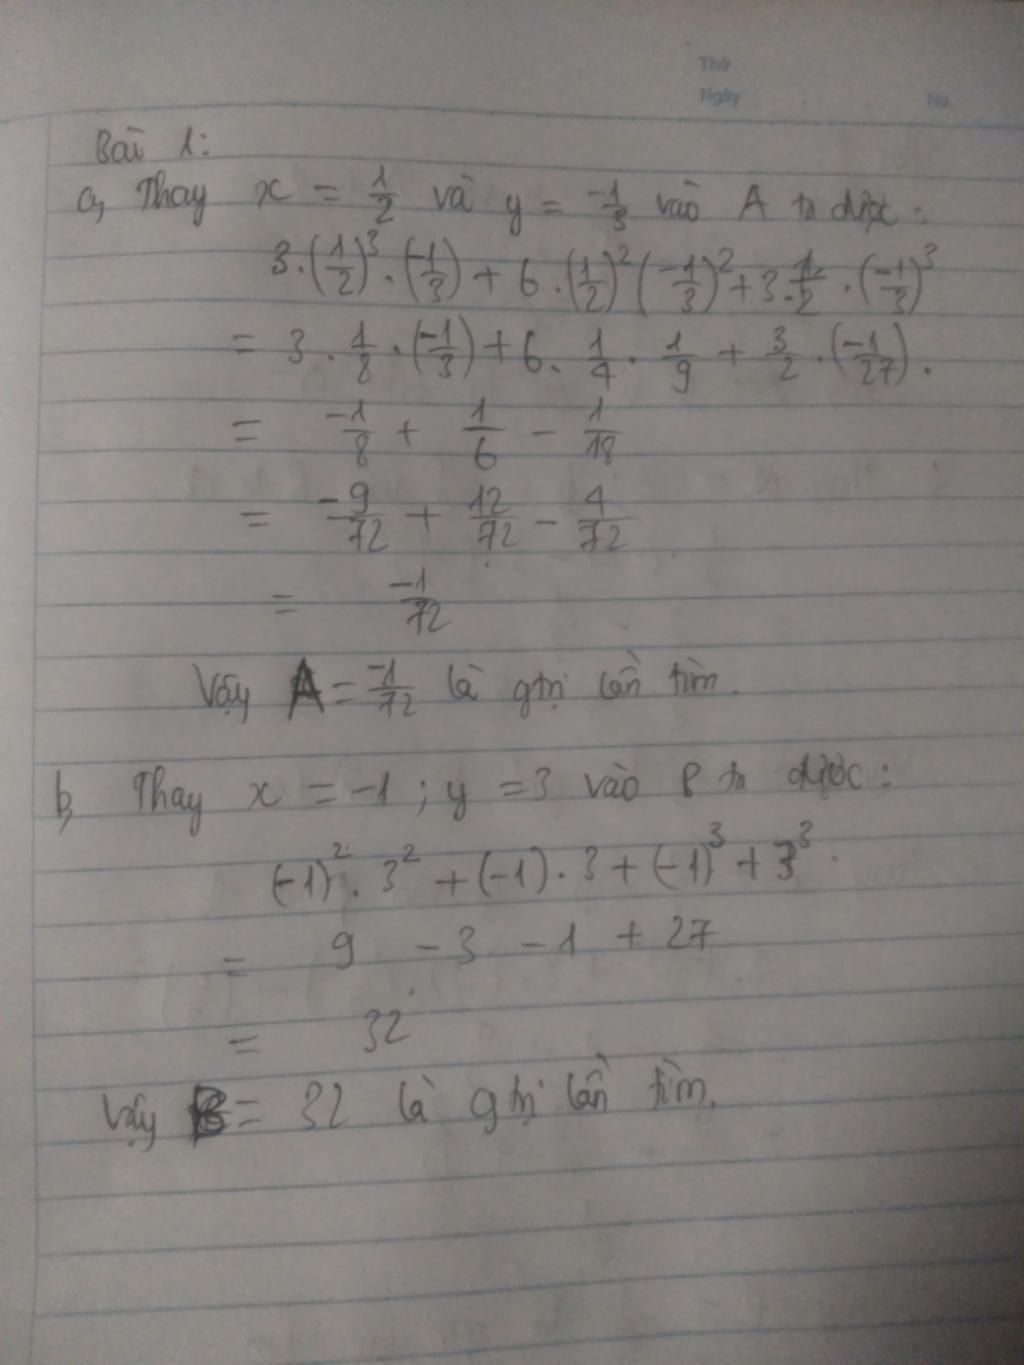 Thứ
Ngày No.
Bài 1:
a, Thay x = 1/2 và y = -1/3 vào A ta được:
3.(1/2)³.(-1/3) + 6.(1/2)²(-1/3)² + 3.1/2.(-1/3)³
= 3.1/8.(-1/3) + 6.1/4.1/9 + 3/2.(-1/27).
= -1/8 + 1/6 - 1/18
= -9/72 + 12/72 - 4/72
= -1/72
Vậy A = -1/72 là gtrị cần tìm.
b, Thay x = -1; y = 3 vào B ta được:
(-1)².3² + (-1).3 + (-1)³ + 3³.
= 9 - 3 - 1 + 27
= 32
Vậy B = 32 là gtrị cần tìm.